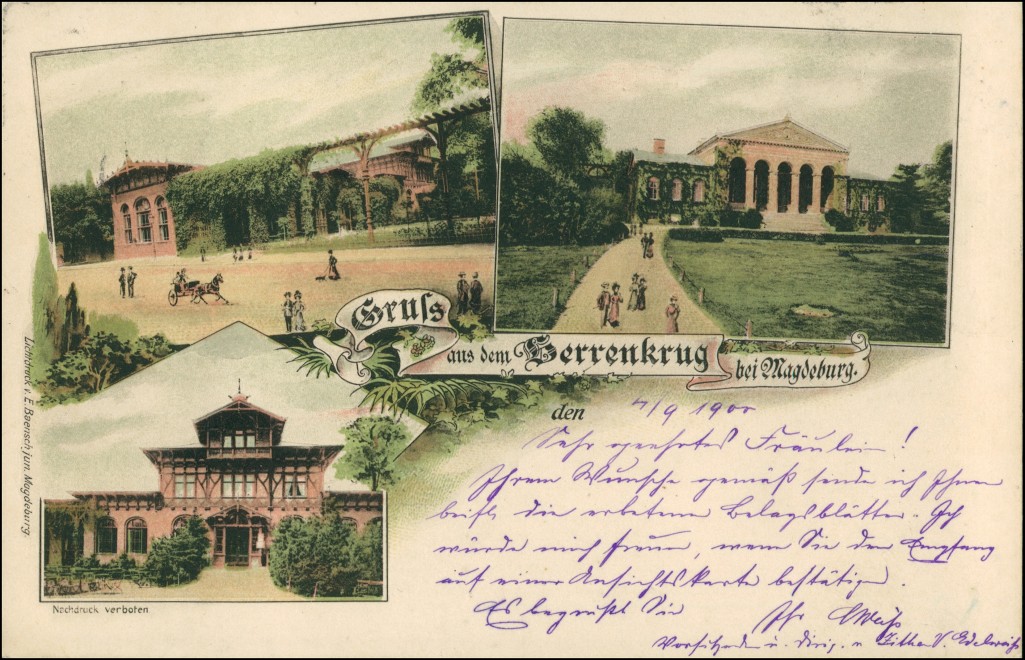 Gruss
aus dem Herrenkrug bei Magdeburg.
den 4/9 1900
Sehr geehrtes Fräulein!
Ihrem Wunsche gemäß sende ich Ihnen
beifl. die erbetenen Belagsblätter. Ich
würde mich freuen, wenn Sie den Empfang
auf einer Ansichtskarte bestätigen.
Es begrüßt Sie Ihr
Vorsitzender u. Dirig. v. Zither V. Edelweiß
Lichtdruck v. E. Baensch jun. Magdeburg.
Nachdruck verboten